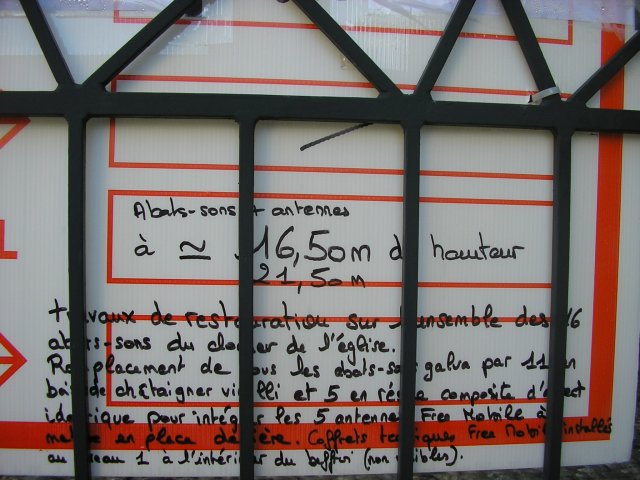 Abats-sons + antennes
à ≃ 16,50m de hauteur
21,50m
travaux de restauration sur l'ensemble des 16
abats-sons du clocher de l'église.
Remplacement de tous les abats-sons galva par 11 en
bois de châtaigner vieilli et 5 en résine composite d'aspect
identique pour intégrer les 5 antennes Free Mobile à
mettre en place derrière. Coffrets techniques Free Mobile installés
au niveau 1 à l'intérieur du beffroi (non visibles).